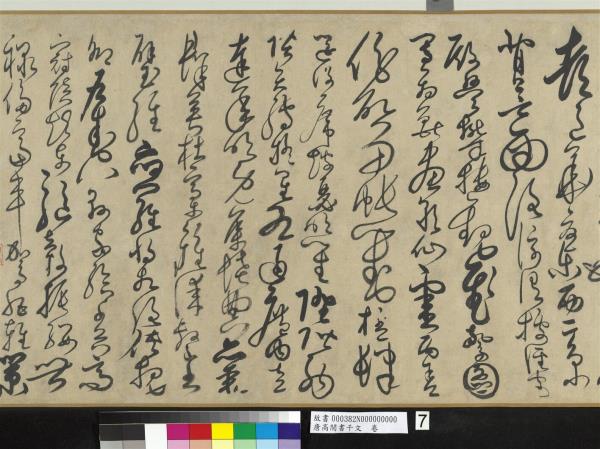 都邑華夏東西二京
背芒面洛浮渭據涇宮
殿盤鬱樓觀飛驚圖
寫禽獸畫彩仙靈丙舍
傍啟甲帳對楹肆
筵設席鼓瑟吹笙升階納
陛弁轉疑星右通廣內左
達承明既集墳典亦聚
群英杜稿鍾隸漆書
壁經府羅將相路俠槐
卿戶封八縣家給千兵高
冠陪輦驅轂振纓世
祿侈富車駕肥輕策
故書 000382N000000000
唐高閑書千文 卷
7